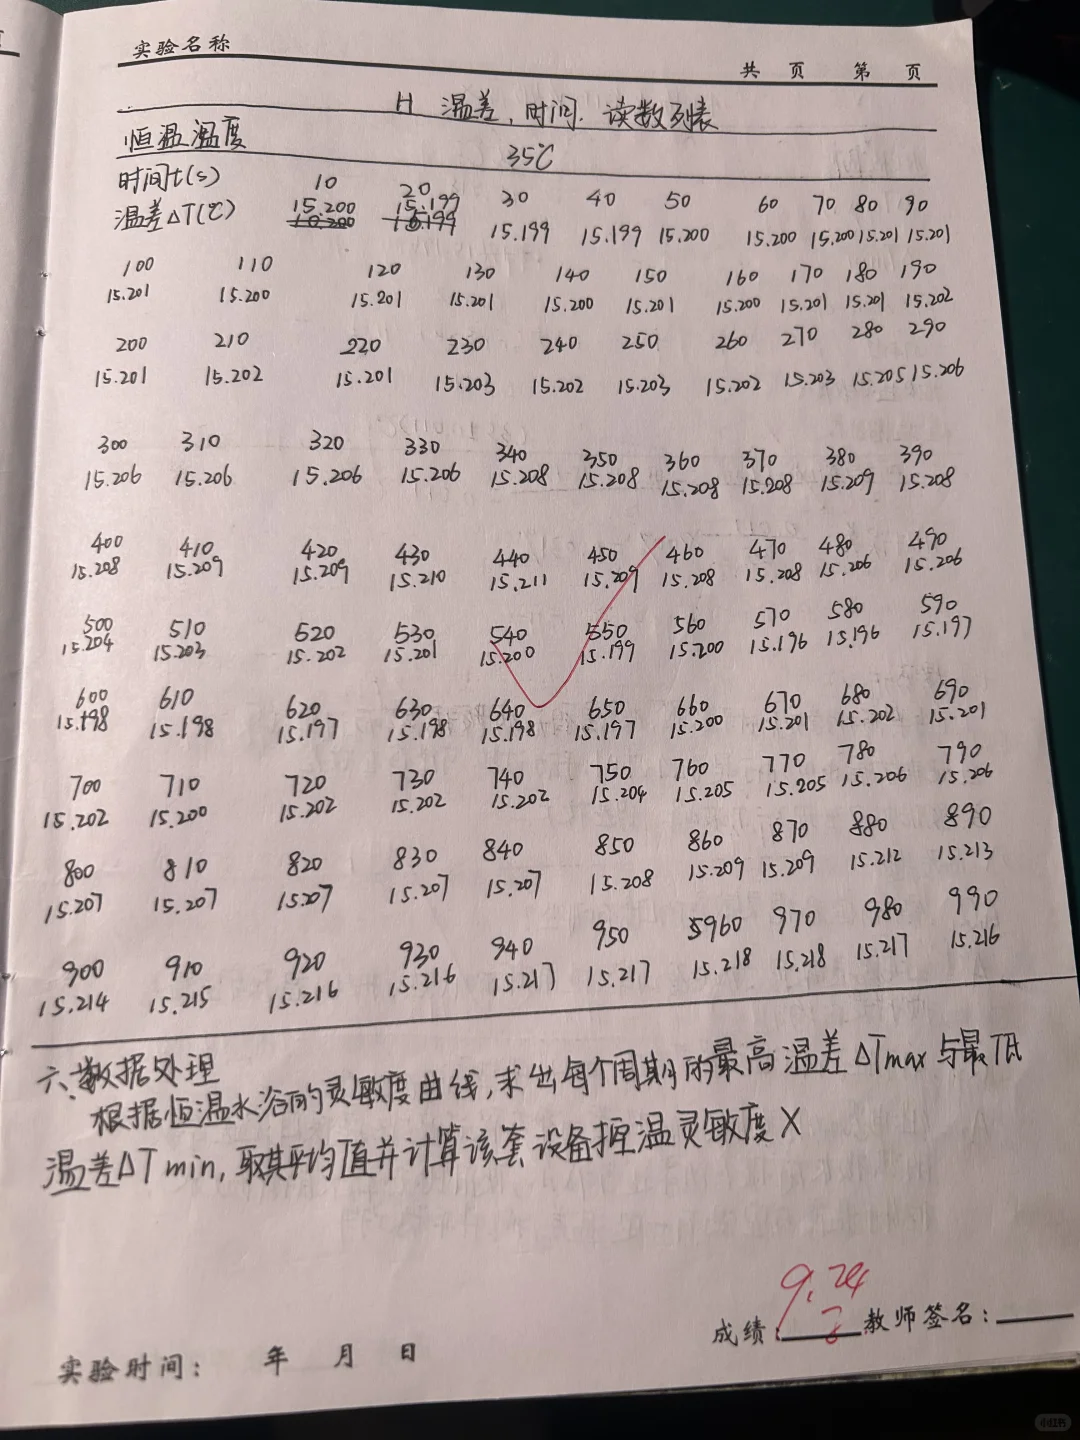 实验名称
共 页 第 页
H 温差、时间、读数列表
恒温温度 35℃
时间t(s) 10 20 30 40 50 60 70 80 90
温差ΔT(℃) 15.200 15.199 15.199 15.199 15.200 15.200 15.200 15.201 15.201
100 110 120 130 140 150 160 170 180 190
15.201 15.200 15.201 15.201 15.200 15.201 15.200 15.201 15.201 15.202
200 210 220 230 240 250 260 270 280 290
15.201 15.202 15.201 15.203 15.202 15.203 15.202 15.203 15.205 15.206
300 310 320 330 340 350 360 370 380 390
15.206 15.206 15.206 15.206 15.208 15.208 15.208 15.208 15.209 15.208
400 410 420 430 440 450 460 470 480 490
15.208 15.209 15.209 15.210 15.211 15.209 15.208 15.208 15.206 15.206
500 510 520 530 540 550 560 570 580 590
15.204 15.203 15.202 15.201 15.200 15.199 15.200 15.196 15.196 15.197
600 610 620 630 640 650 660 670 680 690
15.198 15.198 15.197 15.198 15.198 15.197 15.200 15.201 15.202 15.201
700 710 720 730 740 750 760 770 780 790
15.202 15.200 15.202 15.202 15.202 15.204 15.205 15.205 15.206 15.206
800 810 820 830 840 850 860 870 880 890
15.207 15.207 15.207 15.207 15.207 15.208 15.209 15.209 15.212 15.213
900 910 920 930 940 950 960 970 980 990
15.214 15.215 15.216 15.216 15.217 15.217 15.218 15.218 15.217 15.216
六、数据处理
根据恒温水浴的灵敏度曲线,求出每个周期的最高温差ΔTmax与最低
温差ΔTmin,取其平均值并计算该套设备控温灵敏度X
9.24
成绩: 教师签名:
实验时间: 年 月 日
小红书